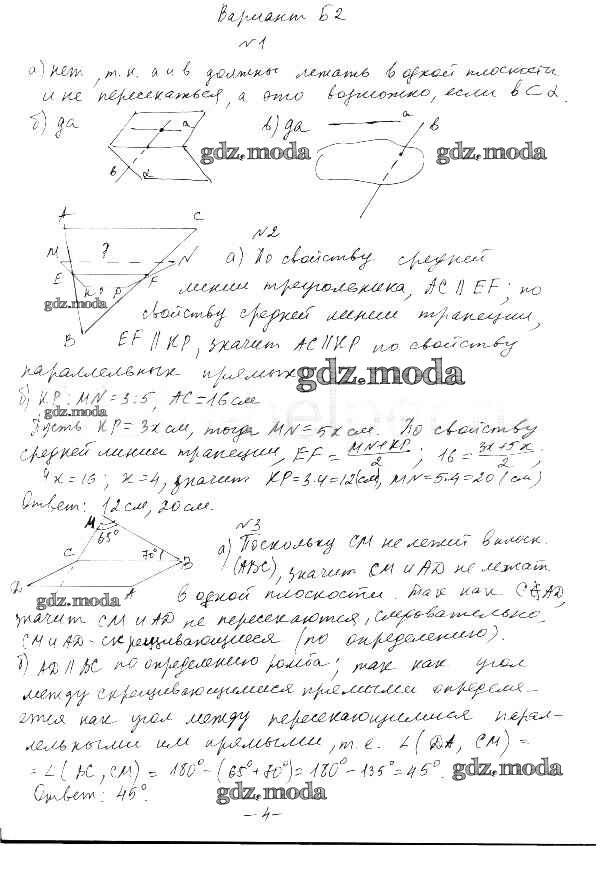 Вариант Б2
№1
а) нет, т.к. а и в должны лежать в одной плоскости
и не пересекаться, а это возможно, если в⊂α.
б) да
в) да
а
в
α
а
в
gdz.moda
gdz.moda
№2
A
C
M
?
N
E
F
K
?
P
B
gdz.moda
а) По свойству средней
линии треугольника, AC ∥ EF; по
свойству средней линии трапеции,
EF ∥ KP, значит AC∥KP по свойству
параллельных прямых
gdz.moda
б) KP : MN = 3:5, AC = 16 см
gdz.moda
Пусть KP = 3x см, тогда MN = 5x см. По свойству
средней линии трапеции, EF = MN+KP/2; 16 = 3x+5x/2;
4x = 16; x = 4, значит KP = 3·4 = 12 (см), MN = 5·4 = 20 (см)
Ответ: 12 см, 20 см.
№3
M
65°
C
70°
B
D
A
gdz.moda
а) Поскольку CM не лежит в плоск.
(ABC), значит CM и AD не лежат
в одной плоскости. Так как C∉AD,
значит CM и AD не пересекаются, следовательно
CM и AD - скрещивающиеся (по определению).
б) AD ∥ BC по определению ромба; так как угол
между скрещивающимися прямыми определя-
ется как угол между пересекающимися парал-
лельными им прямыми, т.е. ∠(DA, CM) =
= ∠(BC, CM) = 180° - (65° + 70°) = 180° - 135° = 45°.
gdz.moda
Ответ: 45°.
gdz.moda
- 4 -